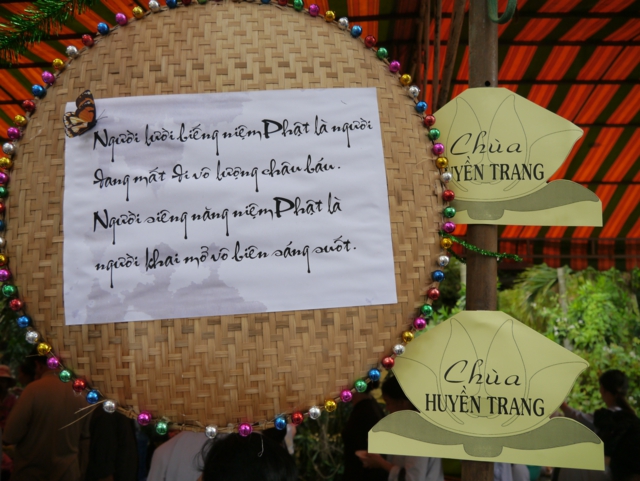 Người lười biếng niệm Phật là người
đang mất đi vô lượng châu báu.
Người siêng năng niệm Phật là
người khai mở vô biên sáng suốt.
Chùa
YỀN TRANG
Chùa
HUYỀN TRANG